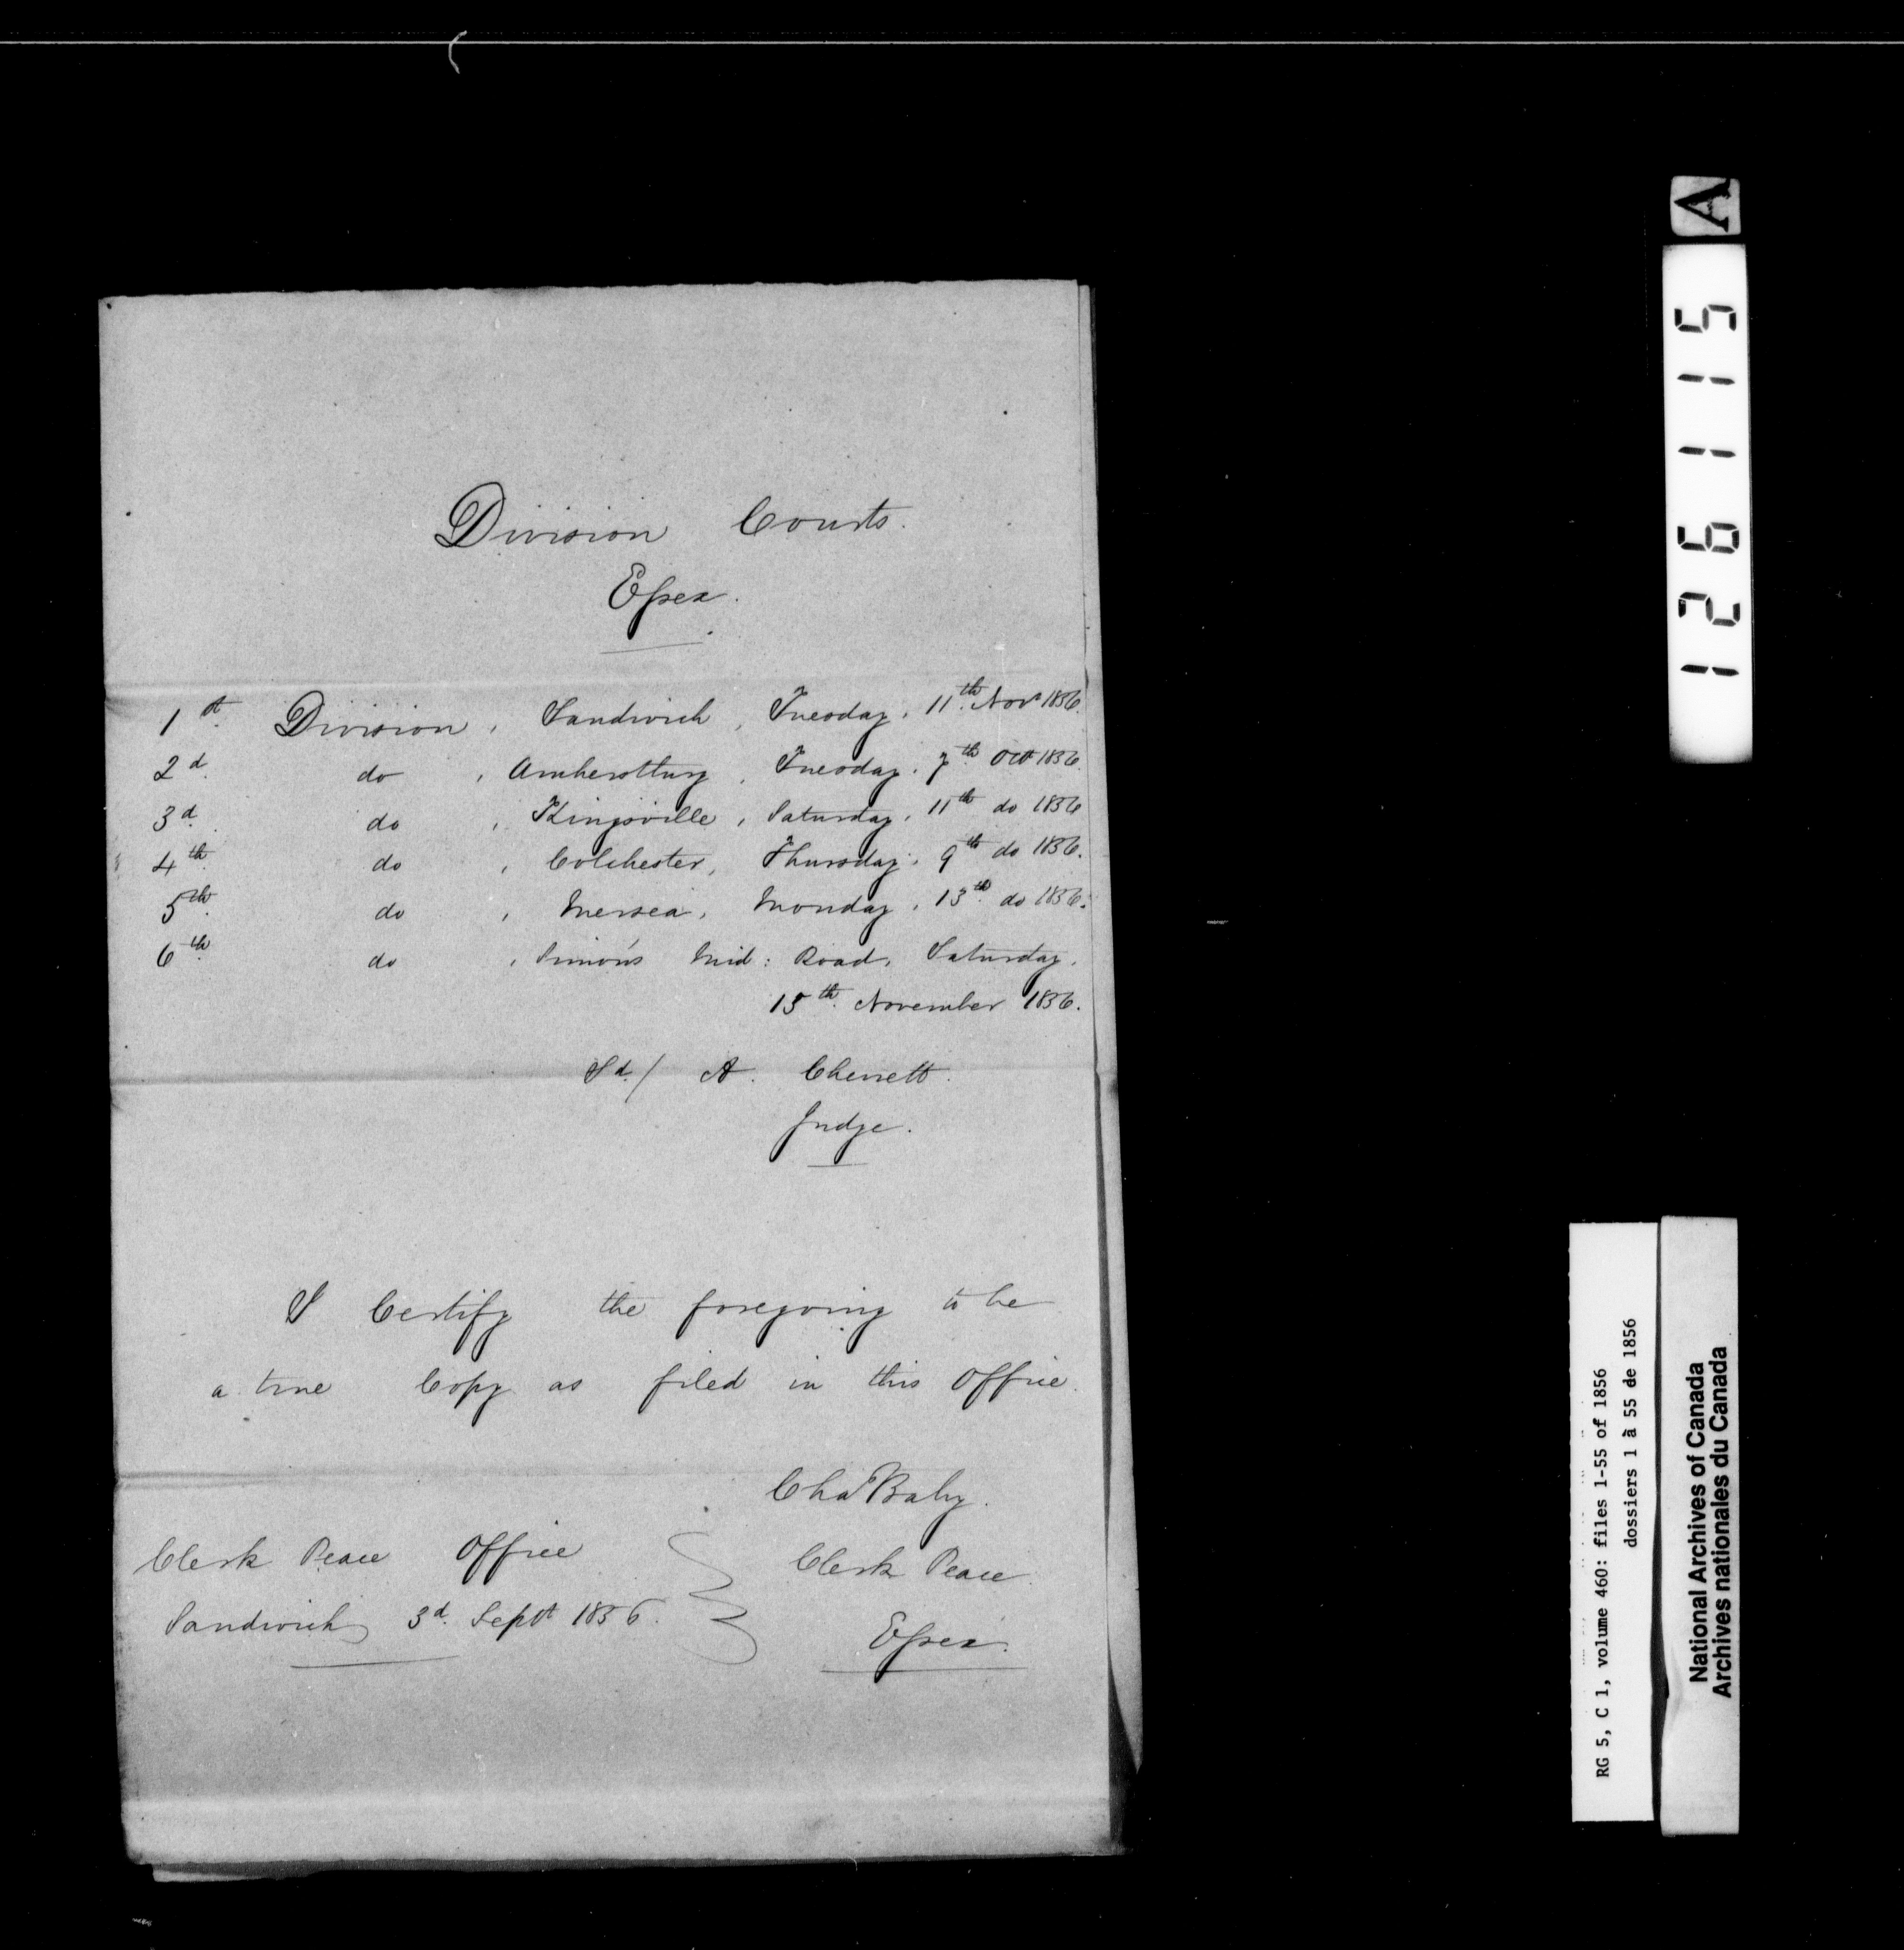 Division Courts.
Essex.
1st Division, Sandwich, Tuesday, 11th Novr 1856.
2d. do, Amherstburg, Tuesday, 7th Oct 1856.
3d. do, Kingsville, Saturday, 11th do 1856
4th do, Colchester, Thursday, 9th do 1856.
5th. do, Mersea, Monday, 13th do 1856.
6th. do, Simon's Mid: Road, Saturday,
15th November 1856.
Sd./ A. Chewett.
Judge.
I Certify the foregoing to be
a true Copy as filed in this Office.
Chas Baby.
Clerk Peace Office
Clerk Peace
Sandwich 3d. Sept 1856.
Essex.
A
126115
RG 5, C 1, volume 460: files 1-55 of 1856
dossiers 1 à 55 de 1856
National Archives of Canada
Archives nationales du Canada